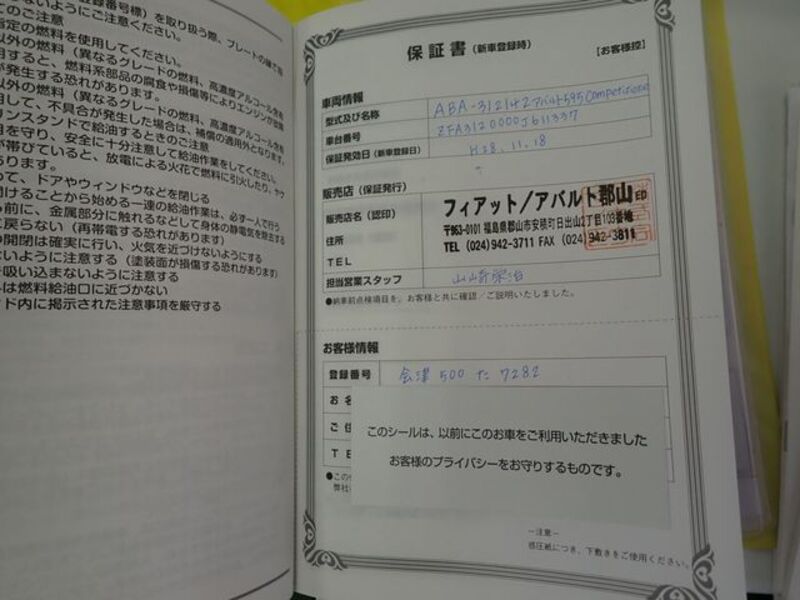 登録番号標）を取り扱う際、プレートの縁で指
ないようにご注意ください。
てのご注意
指定の燃料を使用してください。
以外の燃料（異なるグレードの燃料、高濃度アルコール含有
用すると、燃料系部品の腐食や損傷等によりエンジンが故障
が発生する恐れがあります。
以外の燃料（異なるグレードの燃料、高濃度アルコール含有
用して、不具合が発生した場合は、補償の適用外となります。
リンスタンドで給油するときのご注意
目を守り、安全に十分注意して給油作業をしてください。
が帯びていると、放電による火花で燃料に引火したり、やケ
あります。
って、ドアやウィンドウなどを閉じる
開けることから始める一連の給油作業は、必ず一人で行う
る前に、金属部分に触れるなどして身体の静電気を除去する
に戻らない（再帯電する恐れがあります）
の開閉は確実に行い、火気を近づけないようにする
ないように注意する（塗装面が損傷する恐れがあります）
を吸い込まないように注意する
人は燃料給油口に近づかない
ンド内に掲示された注意事項を厳守する
保証書（新車登録時）
【お客様控】
車両情報
型式及び名称 ABA-312142 アバルト595 Competizione
車台番号 ZFA3120000J611337
保証発効日（新車登録日） H28.11.18
販売店（保証発行）
販売店名（認印） フィアット/アバルト郡山 印
住所 〒963-0101 福島県郡山市安積町日出山2丁目103番地
TEL TEL (024)942-3711 FAX (024)942-3811
担当営業スタッフ 山崎栄治
●納車前点検項目を、お客様と共に確認／ご説明いたしました。
お客様情報
登録番号 会津 500 た 7282
お名
ご住
TE
このシールは、以前にこのお車をご利用いただきました
お客様のプライバシーをお守りするものです。
●この
弊社
－注意－
感圧紙につき、下敷きをご使用ください。